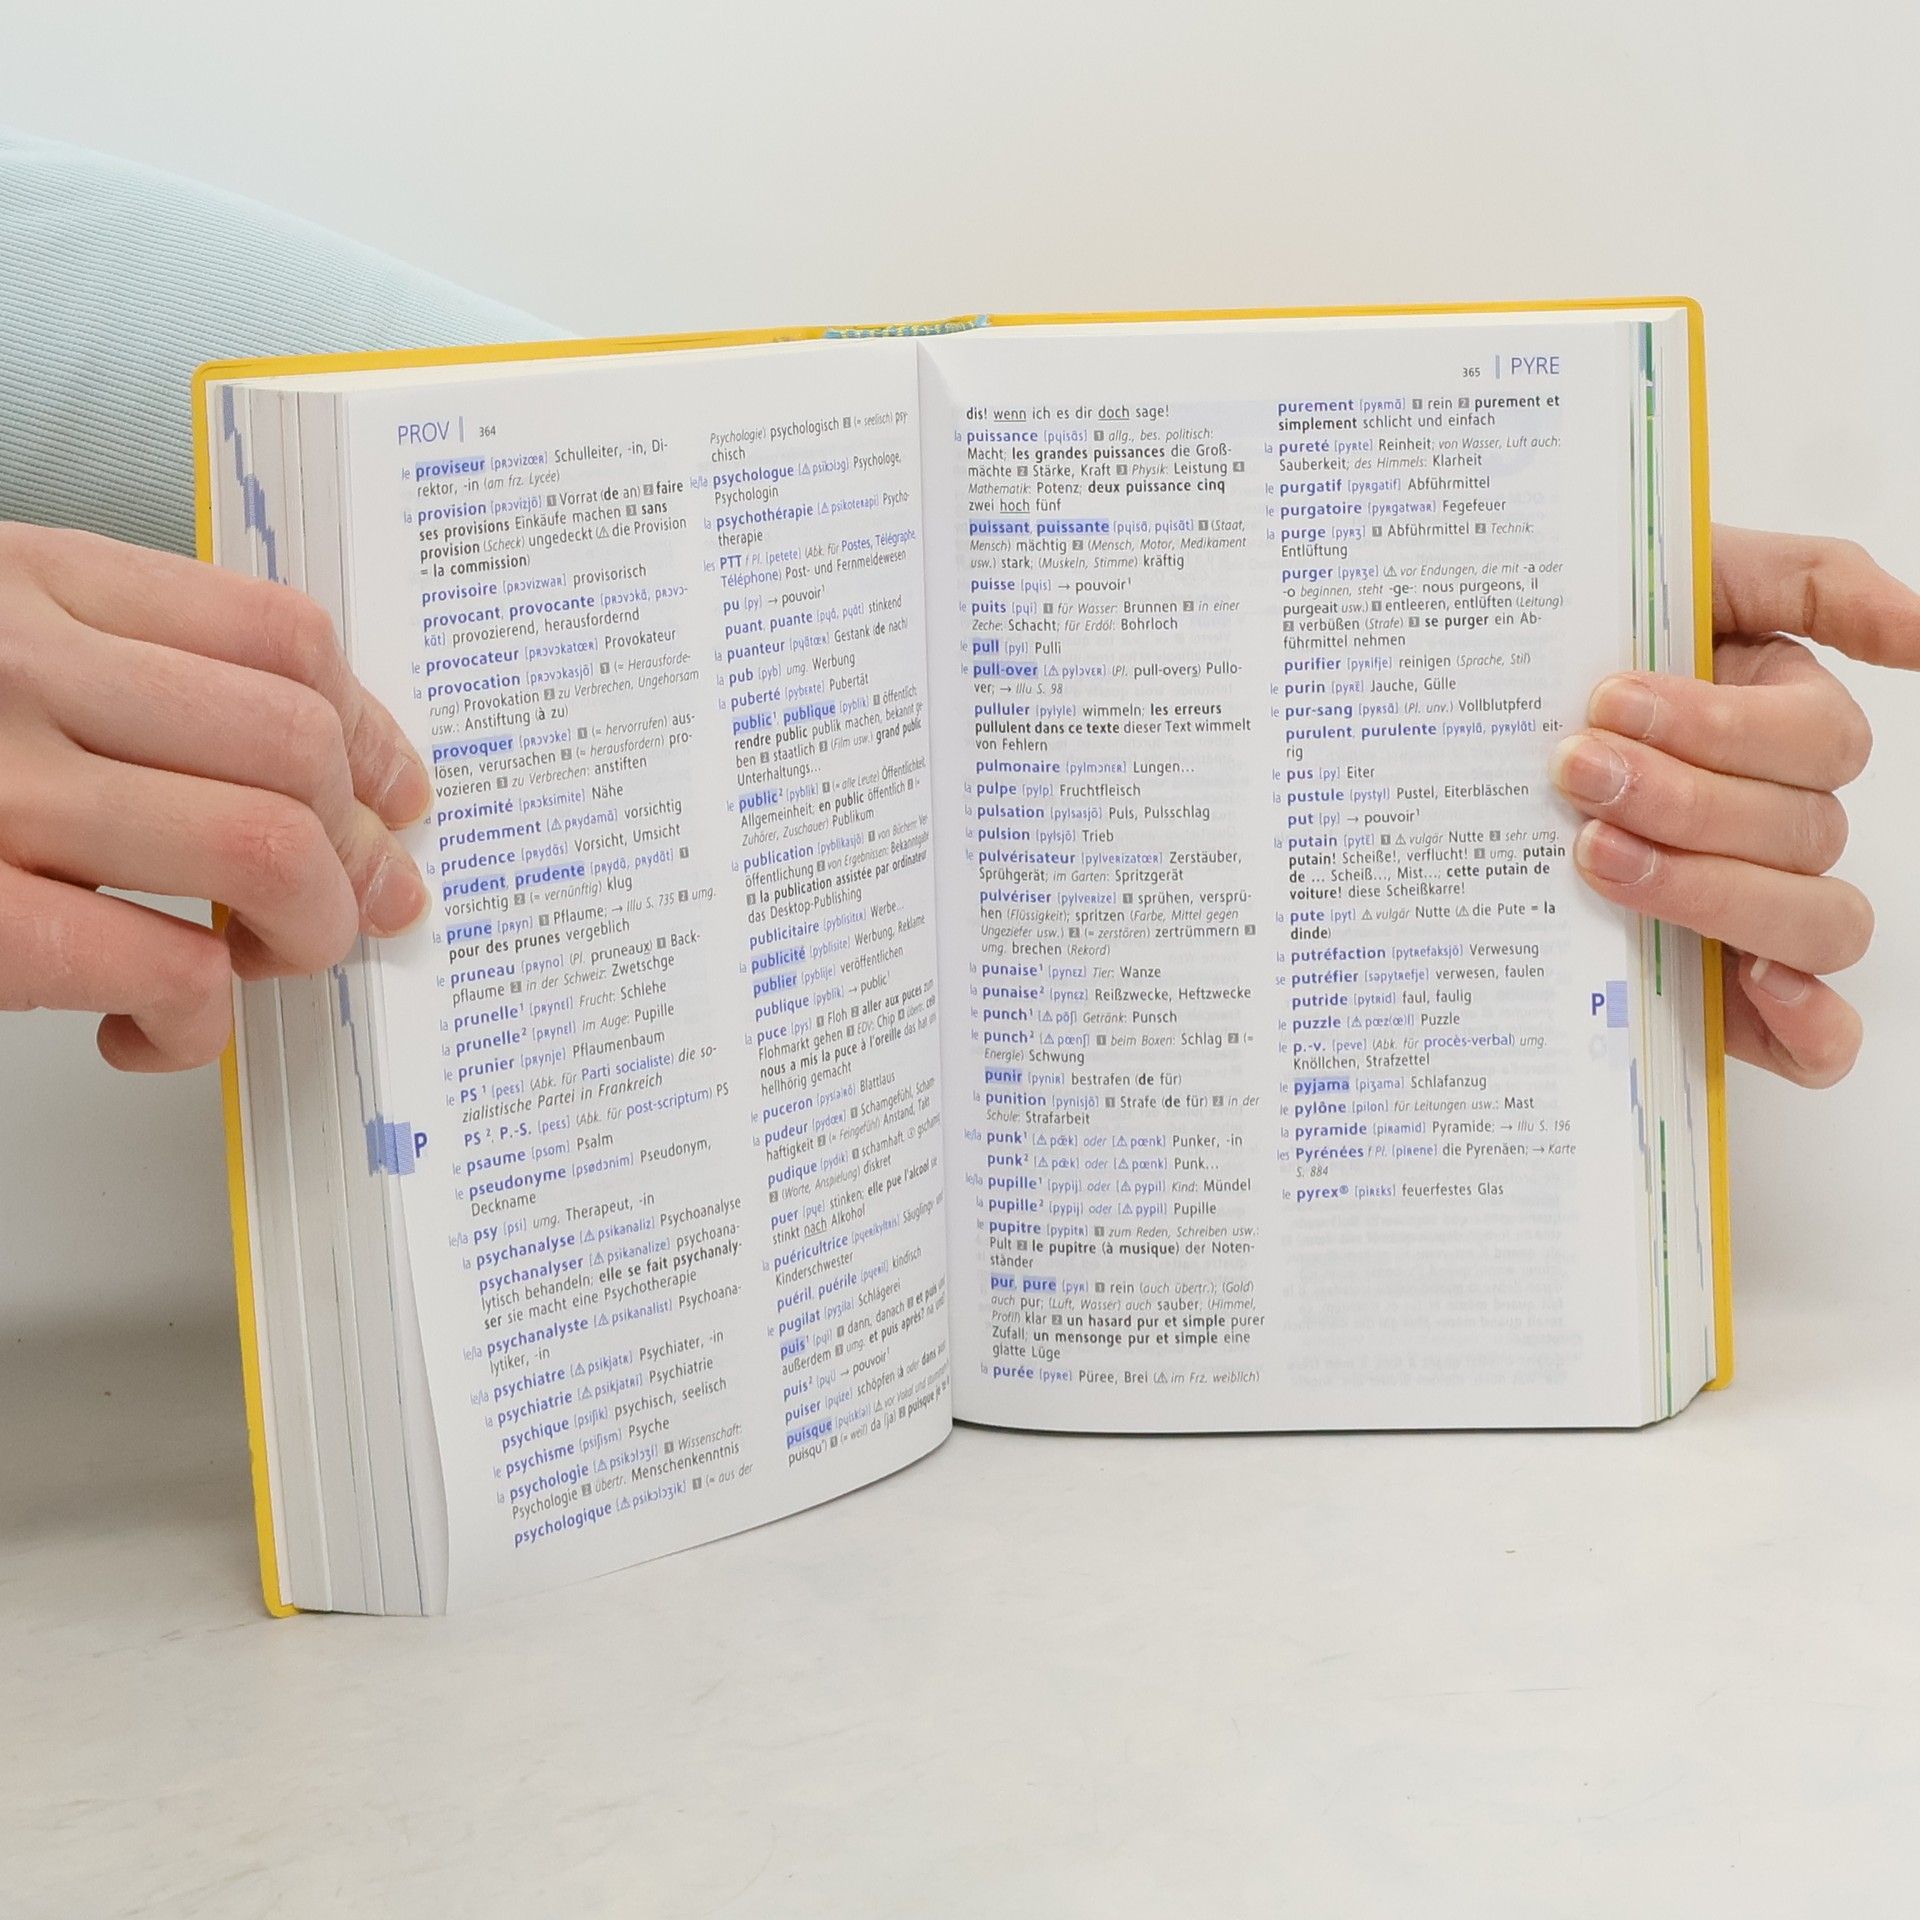 PROV 364
le proviseur [pʀɔvizœʀ] Schulleiter, -in, Di-
rektor, -in (am frz. Lycée)
la provision [pʀɔvizjõ] 1 Vorrat (de an) 2 faire
ses provisions Einkäufe machen 3 sans
provision (Scheck) ungedeckt (⚠ die Provision
= la commission)
provisoire [pʀɔvizwaʀ] provisorisch
provocant, provocante [pʀɔvɔkã, pʀɔvɔ-
kãt] provozierend, herausfordernd
le provocateur [pʀɔvɔkatœʀ] Provokateur
la provocation [pʀɔvɔkasjõ] 1 (= Herausforde-
rung) Provokation 2 zu Verbrechen, Ungehorsam
usw.: Anstiftung (à zu)
provoquer [pʀɔvɔke] 1 (= hervorrufen) aus-
lösen, verursachen 2 (= herausfordern) pro-
vozieren 3 zu Verbrechen: anstiften
proximité [pʀɔksimite] Nähe
prudemment [⚠ pʀydamã] vorsichtig
la prudence [pʀydãs] Vorsicht, Umsicht
prudent, prudente [pʀydã, pʀydãt] 1
vorsichtig 2 (= vernünftig) klug
la prune [pʀyn] 1 Pflaume; → Illu S. 735 2 umg.
pour des prunes vergeblich
le pruneau [pʀyno] (Pl. pruneaux) 1 Back-
pflaume 2 in der Schweiz: Zwetschge
la prunelle¹ [pʀynɛl] Frucht: Schlehe
la prunelle² [pʀynɛl] im Auge: Pupille
le prunier [pʀynje] Pflaumenbaum
le PS ¹ [peɛs] (Abk. für Parti socialiste) die so-
zialistische Partei in Frankreich
PS ², P.-S. [peɛs] (Abk. für post-scriptum) PS
le psaume [psom] Psalm
le pseudonyme [psødɔnim] Pseudonym,
Deckname
le/la psy [psi] umg. Therapeut, -in
la psychanalyse [⚠ psikanaliz] Psychoanalyse
psychanalyser [⚠ psikanalize] psychoana-
lytisch behandeln; elle se fait psychanaly-
ser sie macht eine Psychotherapie
le/la psychanalyste [⚠ psikanalist] Psychoana-
lytiker, -in
le/la psychiatre [⚠ psikjatʀ] Psychiater, -in
la psychiatrie [⚠ psikjatʀi] Psychiatrie
psychique [psiʃik] psychisch, seelisch
le psychisme [psiʃism] Psyche
la psychologie [⚠ psikɔlɔʒi] 1 Wissenschaft:
Psychologie 2 übertr. Menschenkenntnis
psychologique [⚠ psikɔlɔʒik] 1 (= aus der
P
Psychologie) psychologisch 2 (= seelisch) psy-
chisch
le/la psychologue [⚠ psikɔlɔg] Psychologe,
Psychologin
la psychothérapie [⚠ psikoteʀapi] Psycho-
therapie
les PTT f Pl. [petete] (Abk. für Postes, Télégraphe,
Téléphone) Post- und Fernmeldewesen
pu [py] → pouvoir¹
puant, puante [pɥã, pɥãt] stinkend
la puanteur [pɥãtœʀ] Gestank (de nach)
la pub [pyb] umg. Werbung
la puberté [pybɛʀte] Pubertät
public¹, publique [pyblik] 1 öffentlich;
rendre public publik machen, bekannt ge-
ben 2 staatlich 3 (Film usw.) grand public
Unterhaltungs…
le public² [pyblik] 1 (= alle Leute) Öffentlichkeit,
Allgemeinheit; en public öffentlich 2 (=
Zuhörer, Zuschauer) Publikum
la publication [pyblikasjõ] 1 von Büchern: Ver-
öffentlichung 2 von Ergebnissen: Bekanntgabe
3 la publication assistée par ordinateur
das Desktop-Publishing
publicitaire [pyblisitɛʀ] Werbe…
la publicité [pyblisite] Werbung, Reklame
publier [pyblije] veröffentlichen
publique [pyblik] → public¹
la puce [pys] 1 Floh 2 aller aux puces zum
Flohmarkt gehen 3 EDV: Chip 4 übertr. cela
nous a mis la puce à l'oreille das hat uns
hellhörig gemacht
le puceron [pys(ə)ʀõ] Blattlaus
la pudeur [pydœʀ] 1 Schamgefühl, Scham-
haftigkeit 2 (= Feingefühl) Anstand, Takt
pudique [pydik] 1 schamhaft
2 (Worte, Anspielung) diskret
puer [pɥe] stinken; elle pue l'alcool sie
stinkt nach Alkohol
la puéricultrice [pɥeʀikyltʀis] Säuglings- und
Kinderschwester
puéril, puérile [pɥeʀil] kindisch
le pugilat [pyʒila] Schlägerei
puis¹ [pɥi] 1 dann, danach 2 et puis und
außerdem 3 umg. et puis après? na und?
puis² [pɥi] → pouvoir¹
puiser [pɥize] schöpfen (à oder dans aus)
puisque [pɥisk(ə)] (⚠ vor Vokal und stummem
puisqu') 1 (= weil) da (ja) 2 puisque je te le
365 PYRE
dis! wenn ich es dir doch sage!
la puissance [pɥisãs] 1 allg., bes. politisch:
Macht; les grandes puissances die Groß-
mächte 2 Stärke, Kraft 3 Physik: Leistung 4
Mathematik: Potenz; deux puissance cinq
zwei hoch fünf
puissant, puissante [pɥisã, pɥisãt] 1 (Staat,
Mensch) mächtig 2 (Mensch, Motor, Medikament
usw.) stark; (Muskeln, Stimme) kräftig
puisse [pɥis] → pouvoir¹
le puits [pɥi] 1 für Wasser: Brunnen 2 in einer
Zeche: Schacht; für Erdöl: Bohrloch
le pull [pyl] Pulli
le pull-over [⚠ pylɔvɛʀ] (Pl. pull-overs) Pullo-
ver; → Illu S. 98
pulluler [pylyle] wimmeln; les erreurs
pullulent dans ce texte dieser Text wimmelt
von Fehlern
pulmonaire [pylmɔnɛʀ] Lungen…
la pulpe [pylp] Fruchtfleisch
la pulsation [pylsasjõ] Puls, Pulsschlag
la pulsion [pylsjõ] Trieb
le pulvérisateur [pylveʀizatœʀ] Zerstäuber,
Sprühgerät; im Garten: Spritzgerät
pulvériser [pylveʀize] 1 sprühen, versprü-
hen (Flüssigkeit); spritzen (Farbe, Mittel gegen
Ungeziefer usw.) 2 (= zerstören) zertrümmern 3
umg. brechen (Rekord)
la punaise¹ [pynɛz] Tier: Wanze
la punaise² [pynɛz] Reißzwecke, Heftzwecke
le punch¹ [⚠ põʃ] Getränk: Punsch
le punch² [⚠ pœnʃ] 1 beim Boxen: Schlag 2 (=
Energie) Schwung
punir [pyniʀ] bestrafen (de für)
la punition [pynisjõ] 1 Strafe (de für) 2 in der
Schule: Strafarbeit
le/la punk¹ [⚠ pœ̃k] oder [⚠ pœnk] Punker, -in
punk² [⚠ pœ̃k] oder [⚠ pœnk] Punk…
le/la pupille¹ [pypij] oder [⚠ pypil] Kind: Mündel
la pupille² [pypij] oder [⚠ pypil] Pupille
le pupitre [pypitʀ] 1 zum Reden, Schreiben usw.:
Pult 2 le pupitre (à musique) der Noten-
ständer
pur, pure [pyʀ] 1 rein (auch übertr.); (Gold)
auch pur; (Luft, Wasser) auch sauber; (Himmel,
Profil) klar 2 un hasard pur et simple purer
Zufall; un mensonge pur et simple eine
glatte Lüge
la purée [pyʀe] Püree, Brei (⚠ im Frz. weiblich)
purement [pyʀmã] 1 rein 2 purement et
simplement schlicht und einfach
la pureté [pyʀte] Reinheit; von Wasser, Luft auch:
Sauberkeit; des Himmels: Klarheit
le purgatif [pyʀgatif] Abführmittel
le purgatoire [pyʀgatwaʀ] Fegefeuer
la purge [pyʀʒ] 1 Abführmittel 2 Technik:
Entlüftung
purger [pyʀʒe] (⚠ vor Endungen, die mit -a oder
-o beginnen, steht -ge-: nous purgeons, il
purgeait usw.) 1 entleeren, entlüften (Leitung)
2 verbüßen (Strafe) 3 se purger ein Ab-
führmittel nehmen
purifier [pyʀifje] reinigen (Sprache, Stil)
le purin [pyʀɛ̃] Jauche, Gülle
le pur-sang [pyʀsã] (Pl. unv.) Vollblutpferd
purulent, purulente [pyʀylã, pyʀylãt] eit-
rig
le pus [py] Eiter
la pustule [pystyl] Pustel, Eiterbläschen
put [py] → pouvoir¹
la putain [pytɛ̃] 1 ⚠ vulgär Nutte 2 sehr umg.
putain! Scheiße!, verflucht! 3 umg. putain
de … Scheiß…, Mist…; cette putain de
voiture! diese Scheißkarre!
la pute [pyt] ⚠ vulgär Nutte (⚠ die Pute = la
dinde)
la putréfaction [pytʀefaksjõ] Verwesung
se putréfier [səpytʀefje] verwesen, faulen
putride [pytʀid] faul, faulig
le puzzle [⚠ pœz(œ)l] Puzzle
le p.-v. [peve] (Abk. für procès-verbal) umg.
Knöllchen, Strafzettel
le pyjama [piʒama] Schlafanzug
le pylône [pilon] für Leitungen usw.: Mast
la pyramide [piʀamid] Pyramide; → Illu S. 196
les Pyrénées f Pl. [piʀene] die Pyrenäen; → Karte
S. 884
le pyrex® [piʀɛks] feuerfestes Glas
P